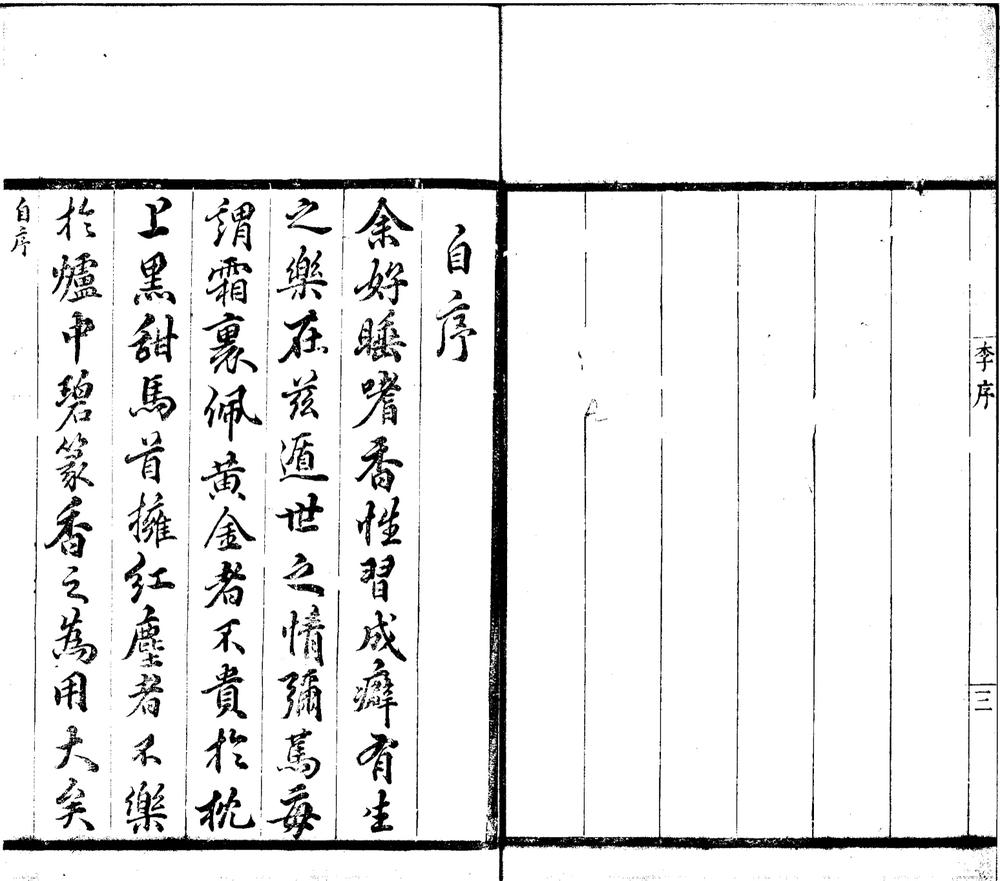 李序
三
自序
余好睡嗜香性習成癖有生
之樂在茲遁世之情彌篤每
謂霜裏佩黃金者不貴於枕
上黑甜馬首擁紅塵者不樂
於爐中碧篆香之為用大矣
自序